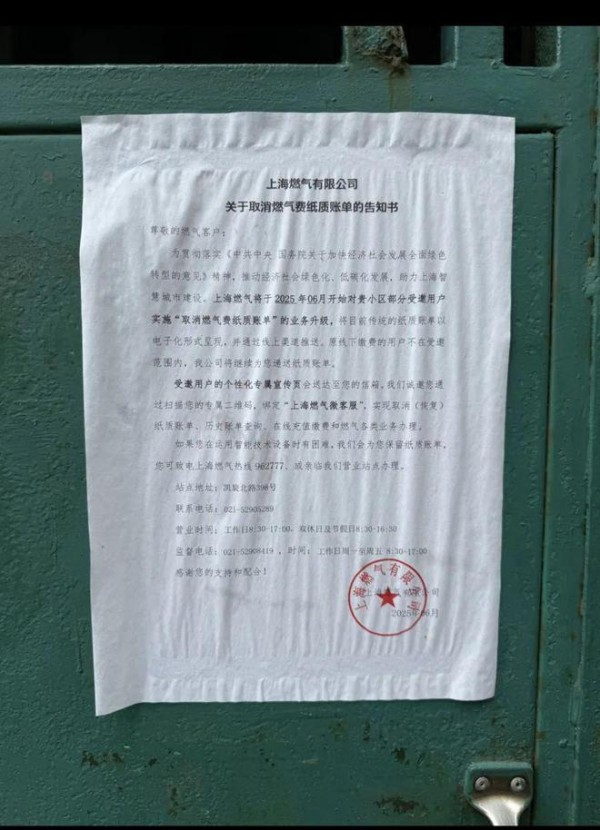 上海燃气有限公司
关于取消燃气费纸质账单的告知书
尊敬的燃气客户：
为贯彻落实《中共中央 国务院关于加快经济社会发展全面绿色
转型的意见》精神，推动经济社会绿色化、低碳化发展，助力上海智
慧城市建设。上海燃气将于2025年06月开始对贵小区部分受邀用户
实施“取消燃气费纸质账单”的业务升级，将目前传统的纸质账单以
电子化形式呈现，并通过线上渠道推送。原线下缴费的用户不在受邀
范围内，我公司将继续为您递送纸质账单。
受邀用户的个性化专属宣传页会送达至您的信箱，我们诚邀您通
过扫描您的专属二维码，绑定“上海燃气微客服”，实现取消（恢复）
纸质账单、历史账单查询、在线充值缴费和燃气各类业务办理。
如果您在运用智能技术设备时有困难，我们会为您保留纸质账单，
您可致电上海燃气热线962777、或亲临我们营业站点办理。
站点地址：凯旋北路398号
联系电话：021-52905289
营业时间：工作日8:30-17:00，双休日及节假日8:30-16:30
监督电话：021-52908419，时间：工作日周一至周五 8:30-17:00
感谢您的支持和配合！
上海燃气有限公司
2025年06月